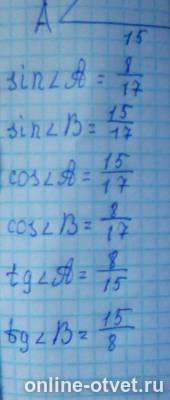 A
15
sin∠A = 8/17
sin∠B = 15/17
cos∠A = 15/17
cos∠B = 8/17
tg∠A = 8/15
tg∠B = 15/8
online-otvet.ru